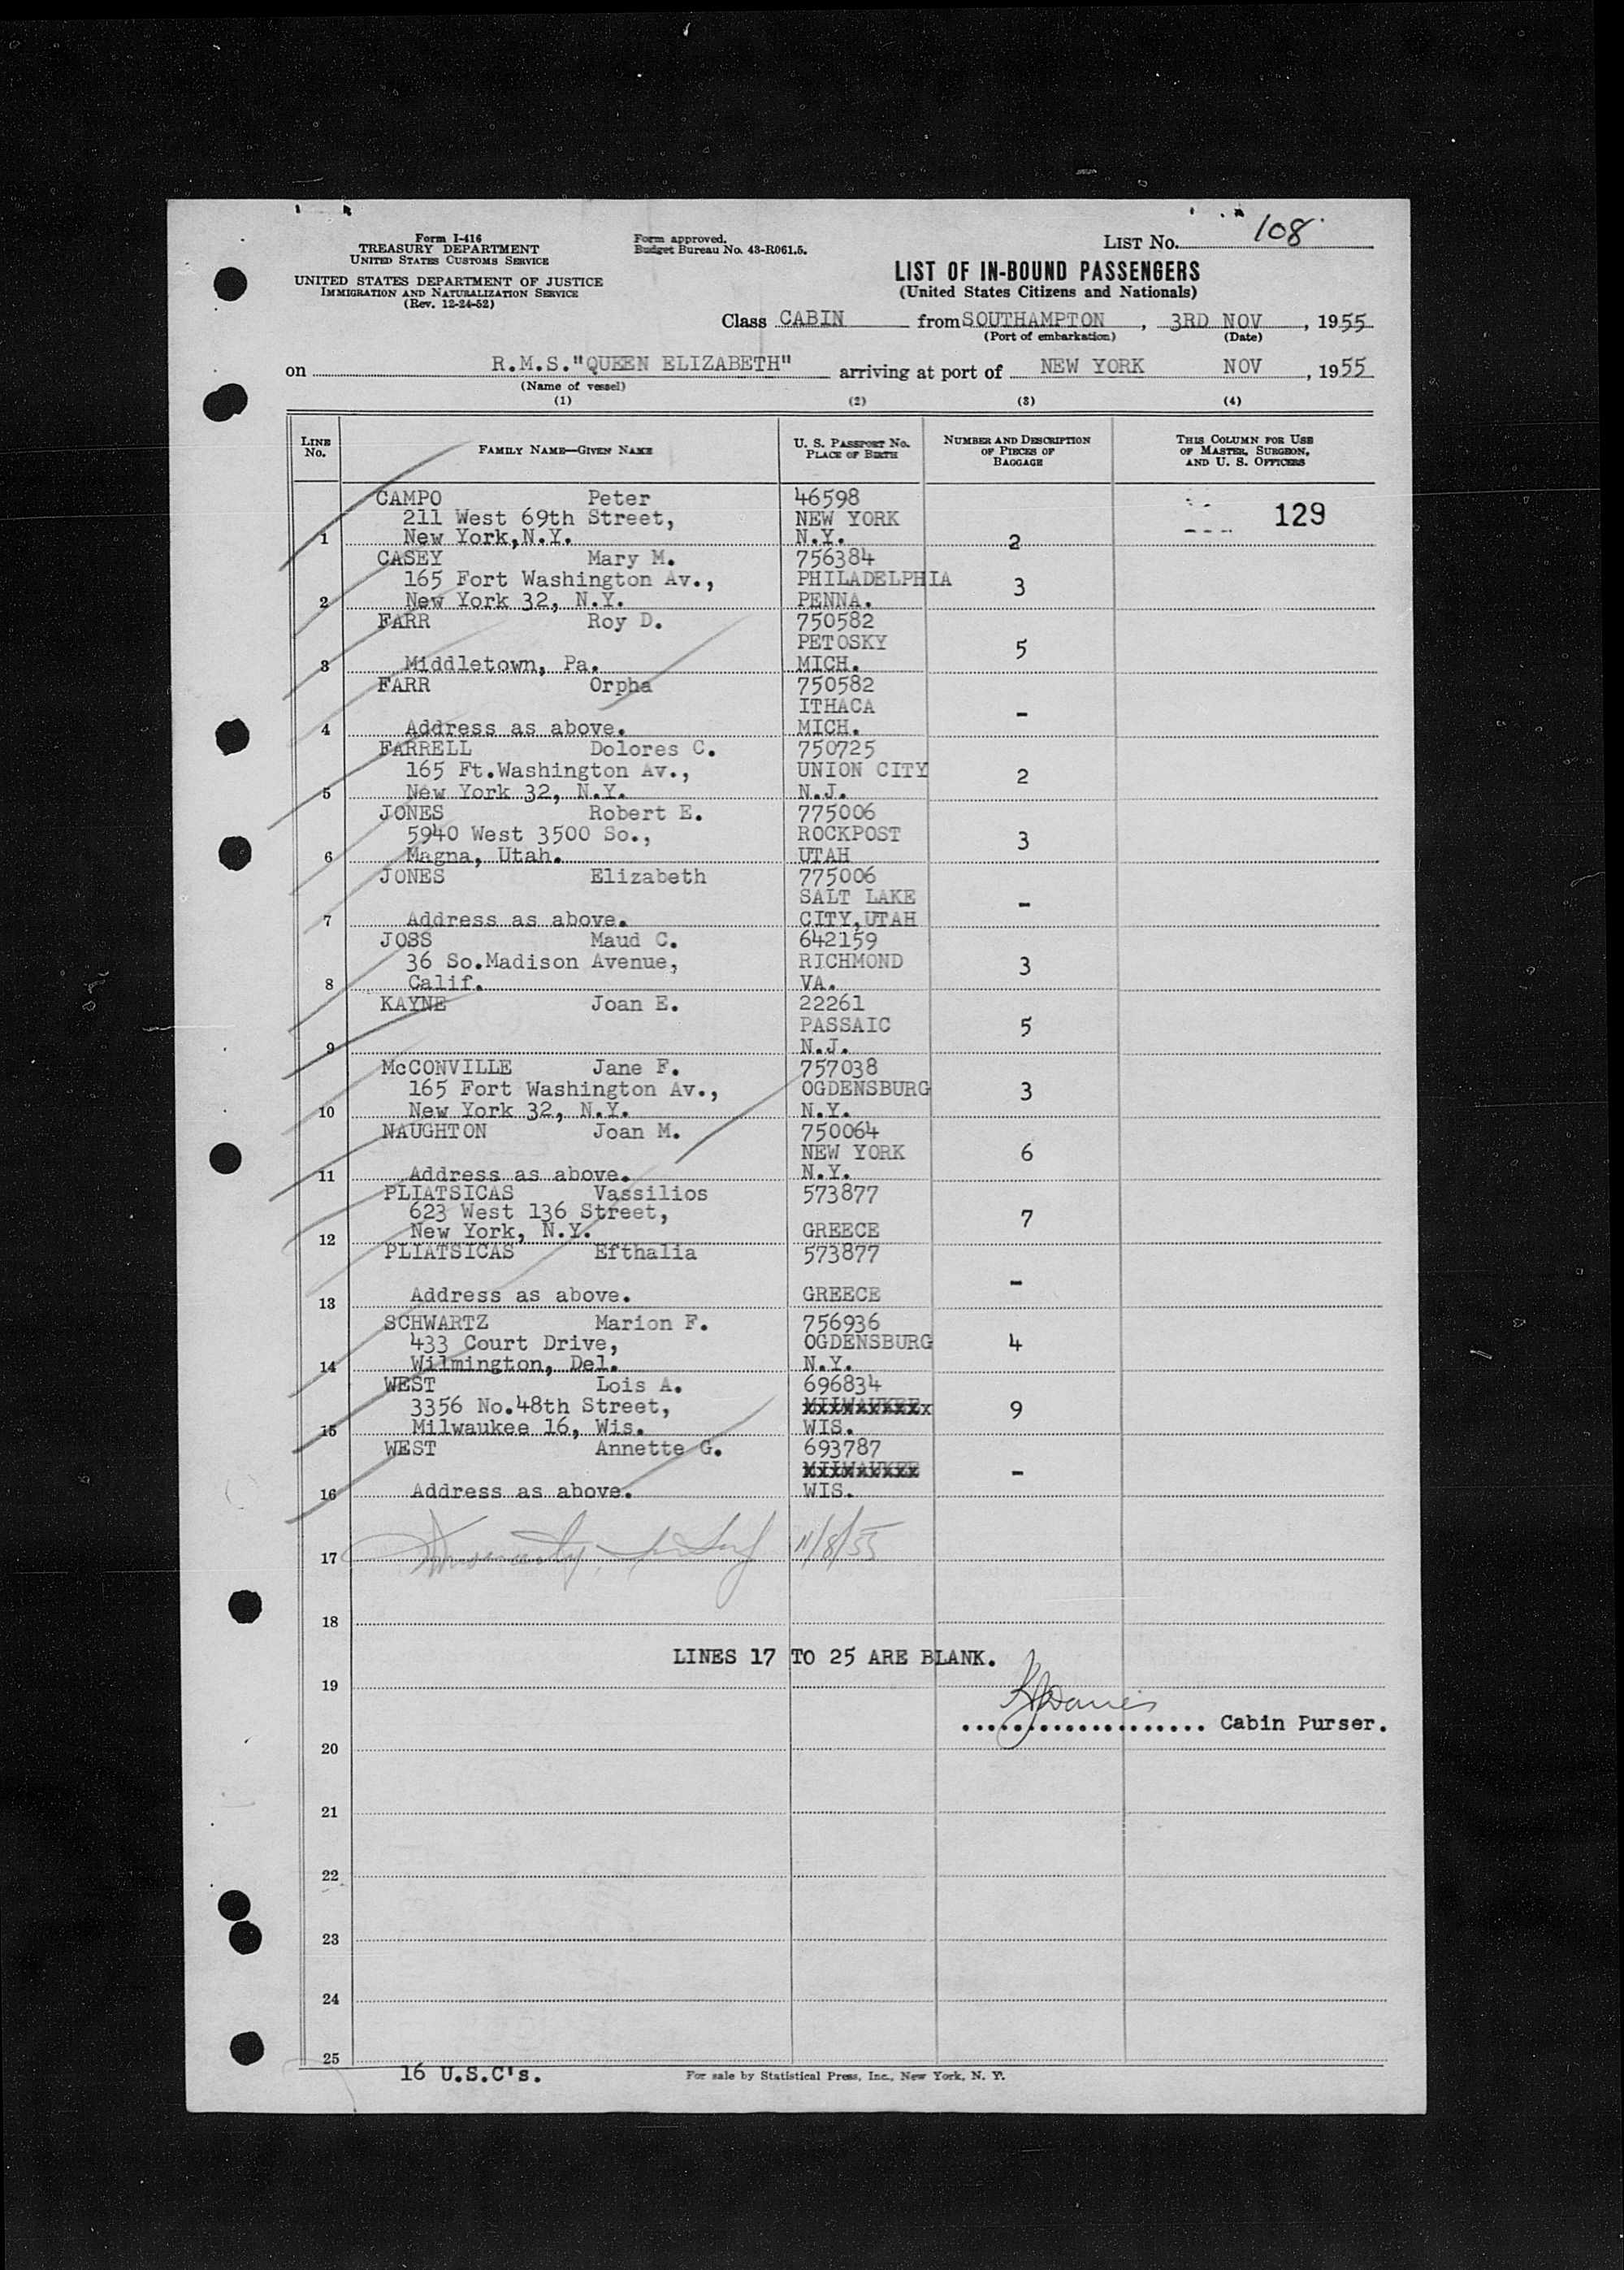 Form I-416
TREASURY DEPARTMENT
UNITED STATES CUSTOMS SERVICE
UNITED STATES DEPARTMENT OF JUSTICE
IMMIGRATION AND NATURALIZATION SERVICE
(Rev. 12-24-52)
Form approved.
Budget Bureau No. 43-R061.5.
LIST No. 108
LIST OF IN-BOUND PASSENGERS
(United States Citizens and Nationals)
Class CABIN from SOUTHAMPTON, 3RD NOV, 1955
(Port of embarkation) (Date)
on R.M.S."QUEEN ELIZABETH" arriving at port of NEW YORK NOV, 1955
(Name of vessel)
(1) (2) (3) (4)
LINE No. FAMILY NAME—GIVEN NAME U. S. PASSPORT No. PLACE OF BIRTH NUMBER AND DESCRIPTION OF PIECES OF BAGGAGE THIS COLUMN FOR USE OF MASTER, SURGEON, AND U. S. OFFICERS
CAMPO Peter 46598
211 West 69th Street, NEW YORK 129
1 New York,N.Y. N.Y. 2
CASEY Mary M. 756384
165 Fort Washington Av., PHILADELPHIA 3
2 New York 32, N.Y. PENNA.
FARR Roy D. 750582
PETOSKY 5
3 Middletown, Pa. MICH.
FARR Orpha 750582
ITHACA -
4 Address as above. MICH.
FARRELL Dolores C. 750725
165 Ft.Washington Av., UNION CITY 2
5 New York 32, N.Y. N.J.
JONES Robert E. 775006
5940 West 3500 So., ROCKPOST 3
6 Magna, Utah. UTAH
JONES Elizabeth 775006
SALT LAKE -
7 Address as above. CITY,UTAH
JOSS Maud C. 642159
36 So.Madison Avenue, RICHMOND 3
8 Calif. VA.
KAYNE Joan E. 22261
PASSAIC 5
9 N.J.
McCONVILLE Jane F. 757038
165 Fort Washington Av., OGDENSBURG 3
10 New York 32, N.Y. N.Y.
NAUGHTON Joan M. 750064
NEW YORK 6
11 Address as above. N.Y.
PLIATSICAS Vassilios 573877
623 West 136 Street, 7
12 New York, N.Y. GREECE
PLIATSICAS Efthalia 573877
-
13 Address as above. GREECE
SCHWARTZ Marion F. 756936
433 Court Drive, OGDENSBURG 4
14 Wilmington, Del. N.Y.
WEST Lois A. 696834
3356 No.48th Street, MILWAUKEE 9
15 Milwaukee 16, Wis. WIS.
WEST Annette G. 693787
MILWAUKEE -
16 Address as above. WIS.
17 11/8/55
18
LINES 17 TO 25 ARE BLANK.
19
KJDavies
Cabin Purser.
20
21
22
23
24
25
16 U.S.C's.
For sale by Statistical Press, Inc., New York, N. Y.